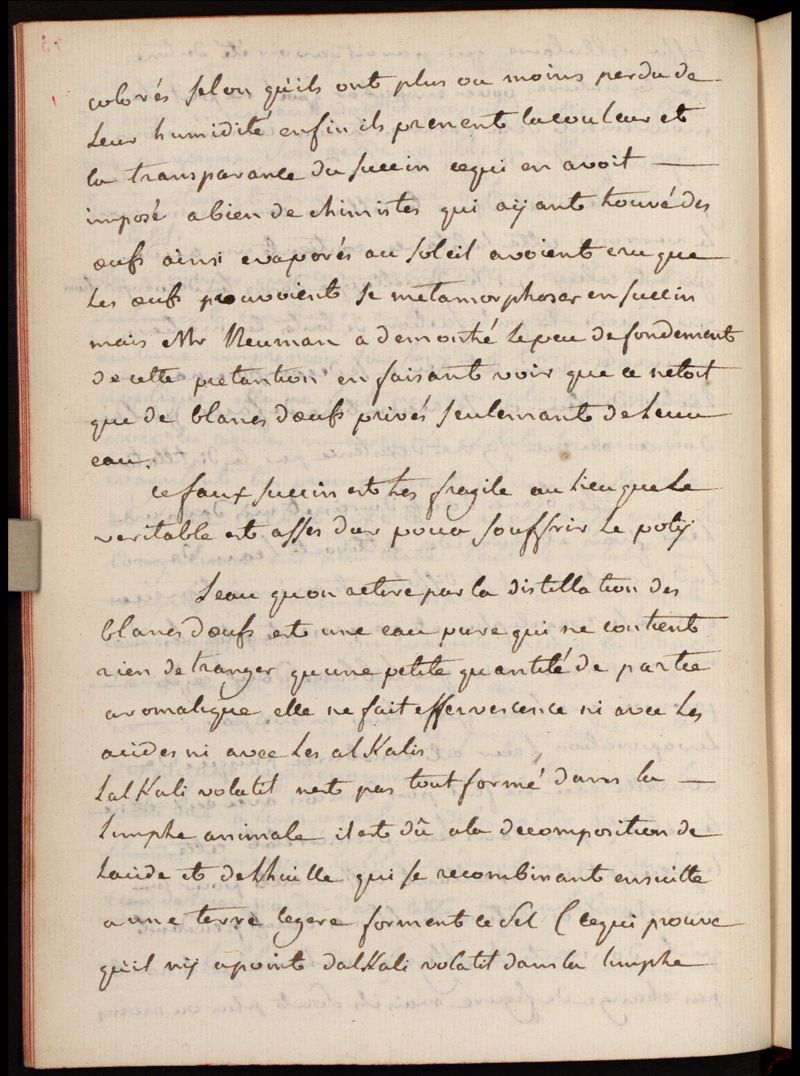 colorés selon qu'ils ont plus ou moins perdu de
leur humidité enfin ils prenent la couleur et
la transparance du succin cequi en avoit —
imposé a bien de chimistes qui aÿant trouvé des
œufs ainsi evaporés au soleil avoient cru que
les œufs pouvoient se metamorphoser en succin
mais Mr Neuman a demontré le peu de fondement
de cette pretantion en faisant voir que ce netoit
que de blancs dœufs privés seulemant de leur
eau.
ce faux succin est tres fragile au lieu que le
veritable est asses dur pour souffrir le poly
Leau qu'on retire par la distillation des
blancs dœufs est une eau pure qui ne contient
rien detranger qu'une petite quantité de partie
aromatique elle ne fait effervescence ni avec les
acides ni avec les alKalis
LalKali volatil nest pas tout formé dans la —
limphe animale il est dû a la decomposition de
lacide et de lhuille qui se recombinant ensuitte
a une terre legere forment ce sel ( cequi prouve
quil niÿ a point dalKali volatil dans la limphe